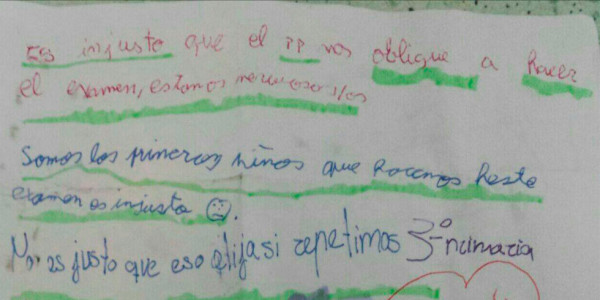 Es injusto que el PP nos obligue a hacer
el examen, estamos nerviosos/as
Somos los primeros niños que hacemos heste
examen es injusto
No es justo que eso elija si repetimos 3º primaria